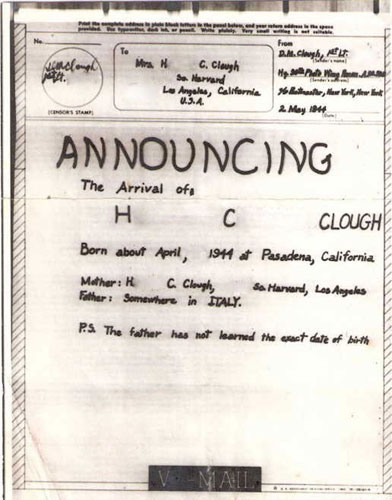 Print the complete address in plain block letters in the panel below, and your return address in the space
provided. Use typewriter, dark ink, or pencil. Write plainly. Very small writing is not suitable.
No.
Clough
1st Lt.
(CENSOR'S STAMP)
To
Mrs. H C. Clough
So. Harvard
Los Angeles, California
U.S.A.
From
D.M. Clough, 1st Lt.
(Sender's name)
Hq. Photo Wing
(Sender's address)
c/o Postmaster, New York, New York
2 May 1944
(Date)
ANNOUNCING
The Arrival of:
H C CLOUGH
Born about April, 1944 at Pasadena, California
Mother: H C. Clough, So. Harvard, Los Angeles
Father: Somewhere in ITALY.
P.S. The father has not learned the exact date of birth
V - MAIL